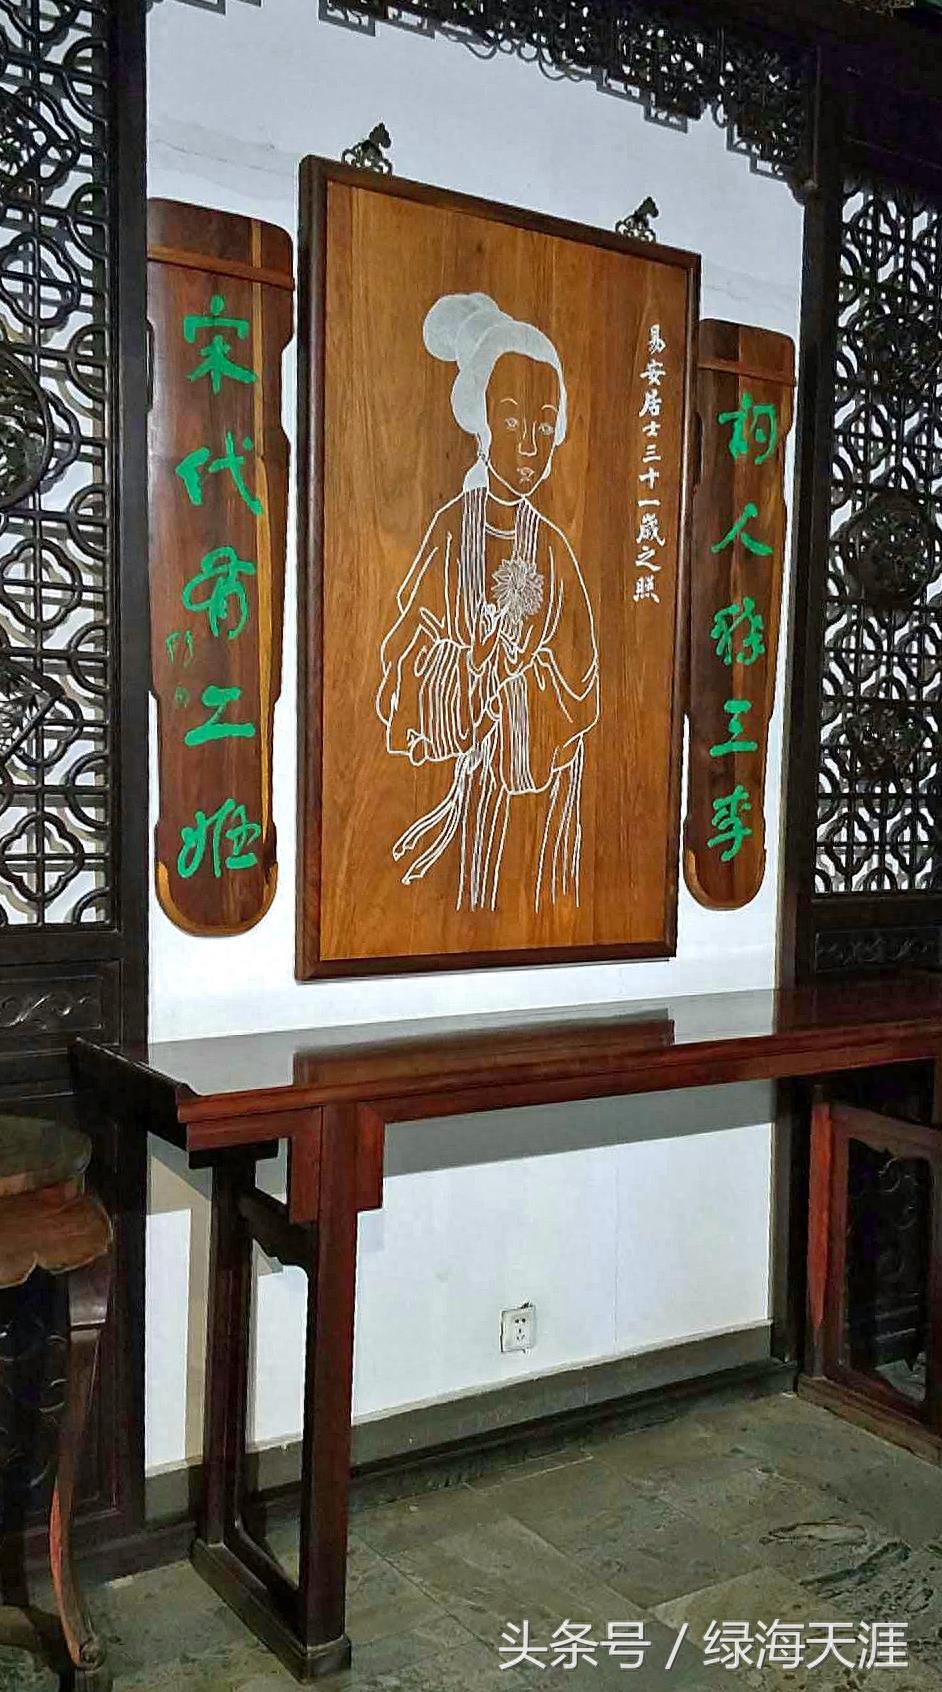 词人称三李
易安居士三十一歲之照
宋代有二姬
头条号 / 绿海天涯